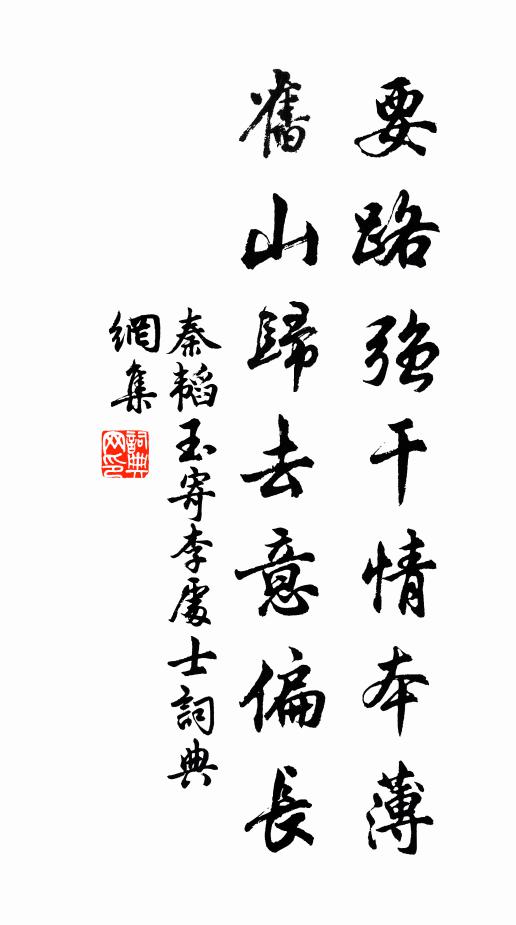 要路强干情本薄
舊山歸去意偏長
秦韜玉寄李處士詞典
網集
詞典
网印